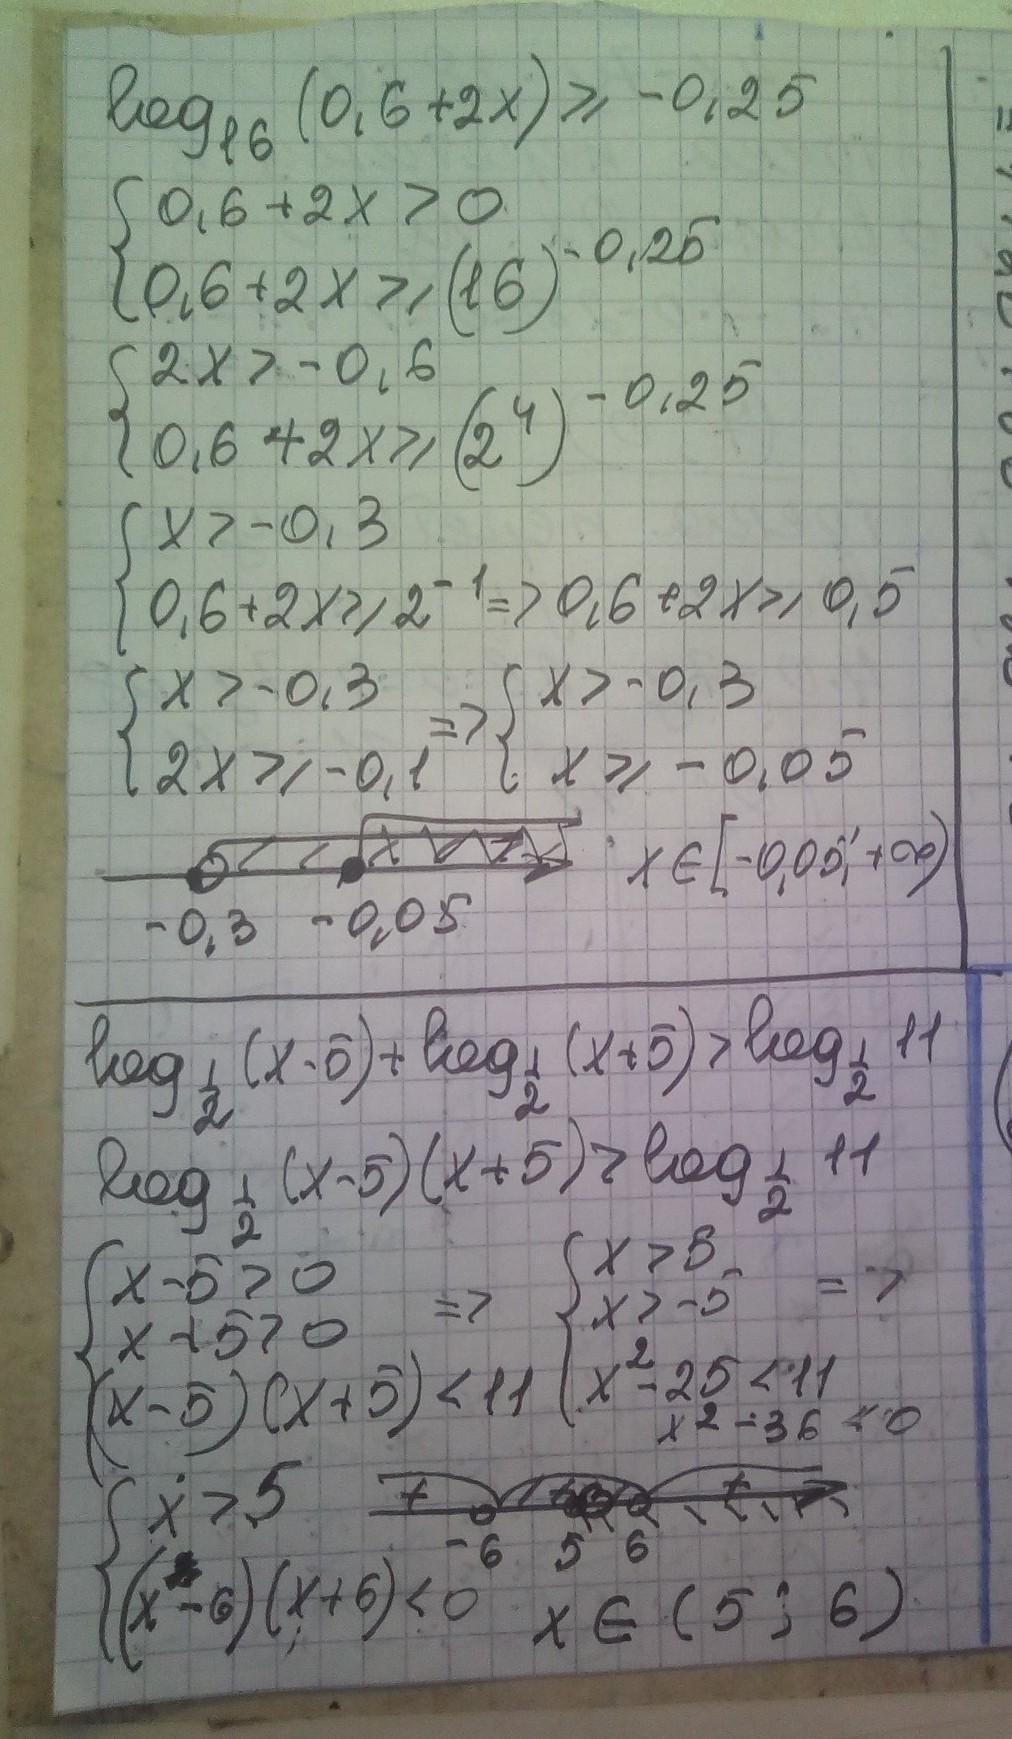 log₁₆ (0,6+2x) ⩾ -0,25
{ 0,6+2x > 0
0,6+2x ⩾ (16)^-0,25
{ 2x > -0,6
0,6+2x ⩾ (2^4)^-0,25
{ x > -0,3
0,6+2x ⩾ 2^-1 => 0,6+2x ⩾ 0,5
{ x > -0,3 => { x > -0,3
2x ⩾ -0,1 x ⩾ -0,05
-0,3 -0,05 x ∈ [-0,05; +∞)
log_1/2 (x-5) + log_1/2 (x+5) > log_1/2 11
log_1/2 (x-5)(x+5) > log_1/2 11
{ x-5 > 0 => { x > 5 =>
x+5 > 0 x > -5
(x-5)(x+5) < 11 x²-25 < 11
x²-36 < 0
{ x > 5 + +
-6 5 6
(x-6)(x+6) < 0 x ∈ (5; 6)